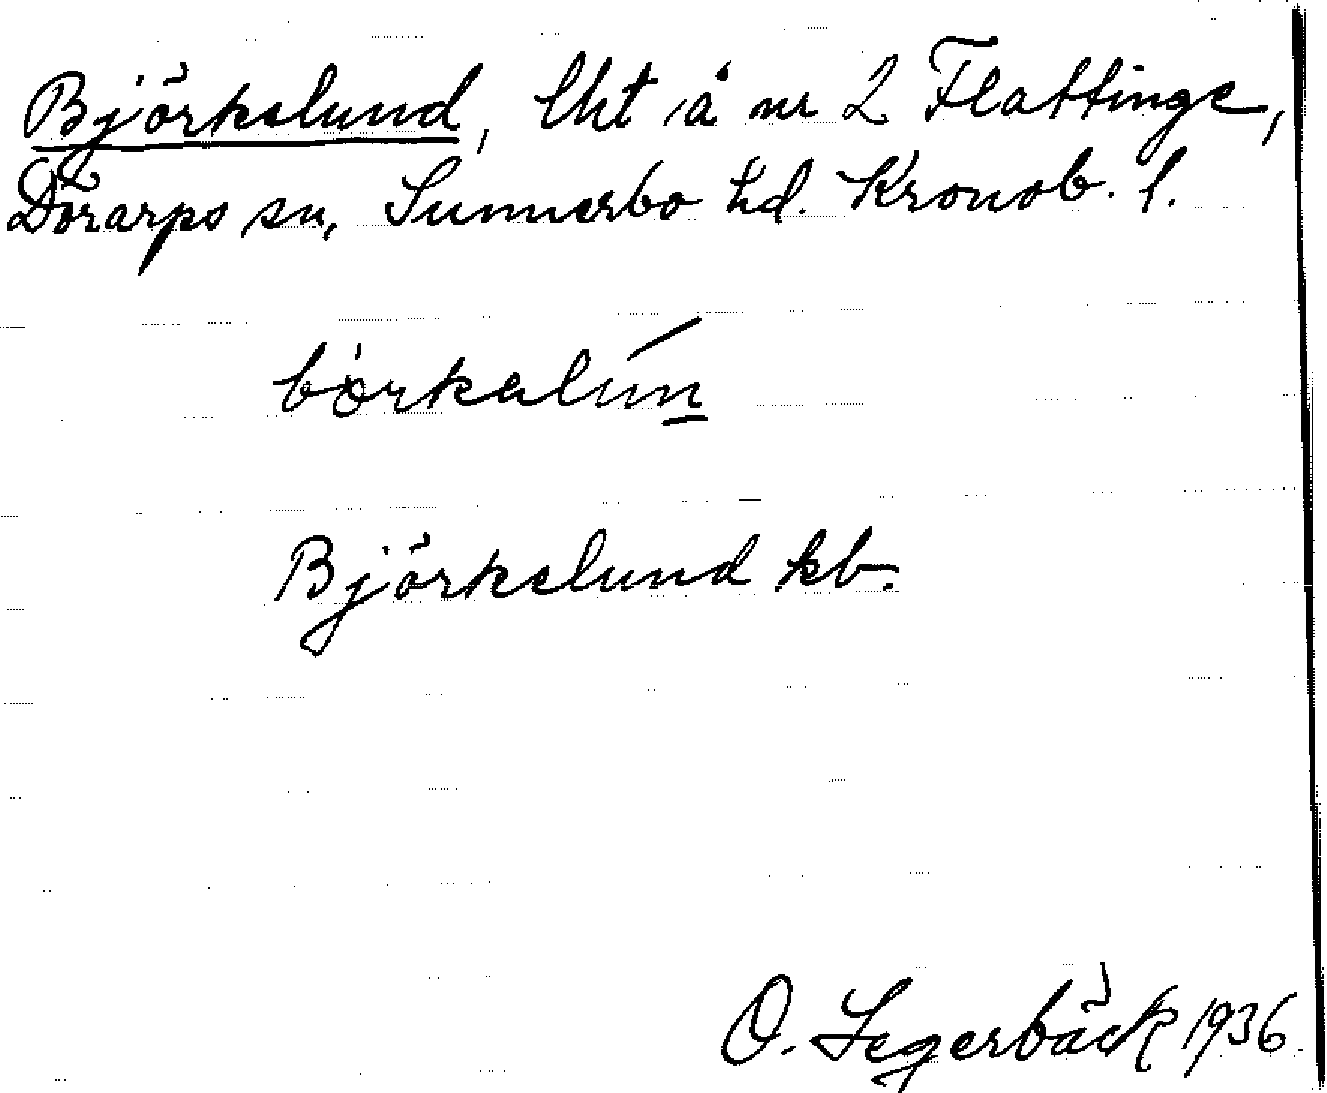 Björkelund, lht å nr 2 Flattinge,
Dörarps sn, Sunnerbo hd. Kronob. l.
börkalún
Björkelund kb.
O. Segerbäck 1936